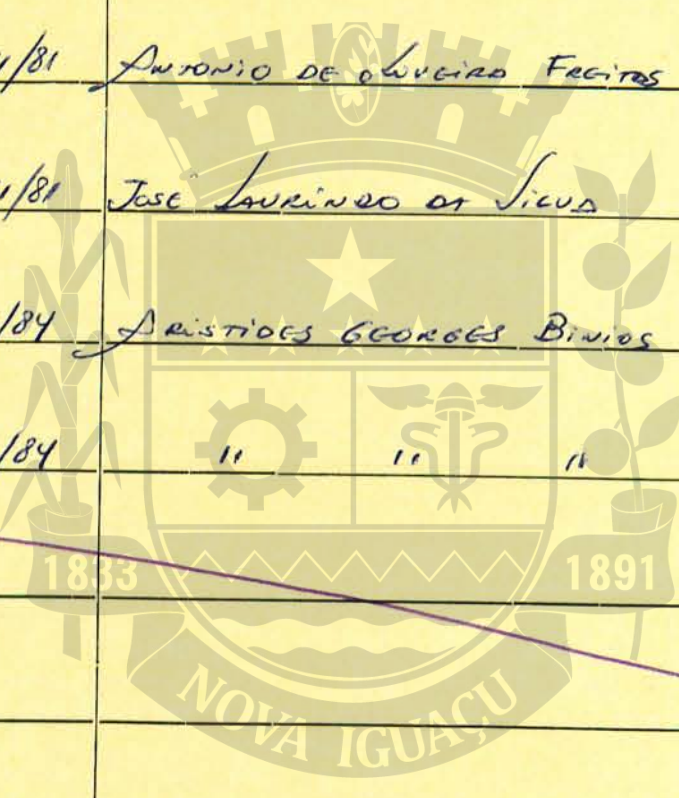 1/81 ANTONIO DE OLIVEIRA FREITAS
1/81 JOSÉ LAURINDO DA SILVA
/84 ARISTIDES GEORGES BINIOS
/84 " " "
1833 1891
NOVA IGUAÇU